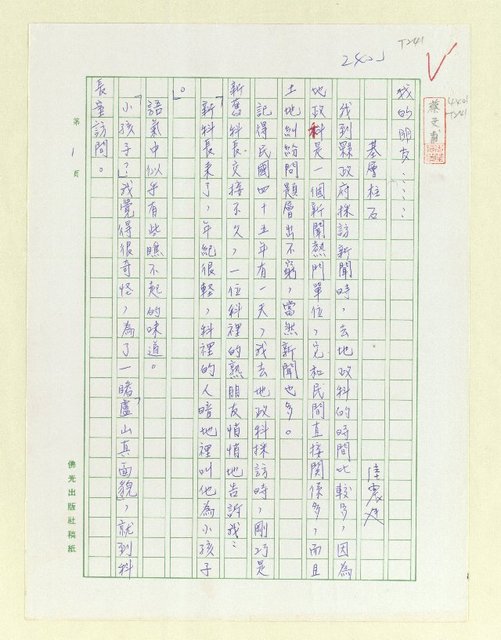 2400J
T241
我的朋友……
基層柱石
陳震廷
我到縣政府採訪新聞時，去地政科的時間比較多，因為
地政科是一個新聞熱門單位，它和民間直接關係多，而且
土地糾紛問題層出不窮，當然新聞也多。
記得民國四十五年有一天，我去地政科採訪時，剛巧是
新舊科長交接不久，一位科裡的熟朋友悄悄地告訴我：
「新科長來了，年紀很輕，科裡的人暗地裡叫他為小孩子
」。
語氣中似乎有些瞧不起的味道。
「小孩子？」我覺得很奇怪，為了一睹盧山真面貌，就到科
長室訪問。
第1頁
佛光出版社稿紙